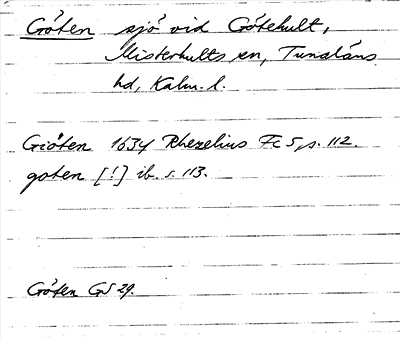 Göten sjö vid Götehult,
Misterhults sn, Tunaläns
hd, Kalm. l.
Giöten 1634 Rhezelius Fc 5, s. 112.
goten [!] ib. s. 113.
Göten GS 29.